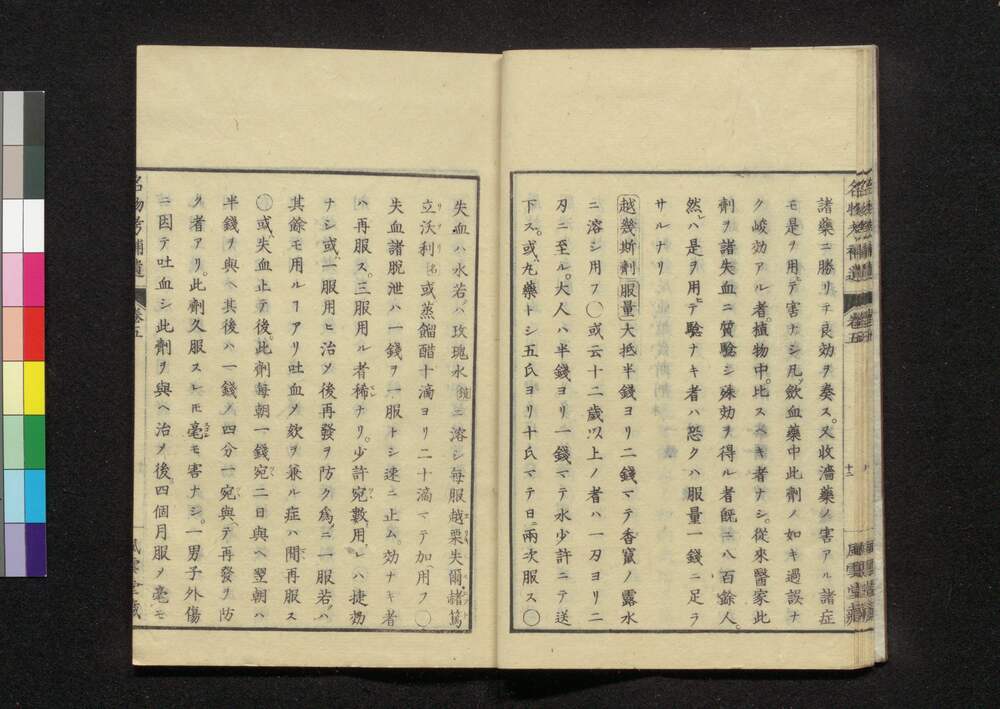 諸藥ニ勝リテ良効ヲ奏ス。又收濇藥ノ害アル諸症
モ是ヲ用テ害ナシ凡歛血藥中此劑ノ如キ過誤ナ
ク峻効アル者。植物中。比スヘキ者ナシ。從來醫家此
劑ヲ諸失血ニ質驗シ殊効ヲ得ル者既ニ八百餘人。
然レハ是ヲ用テ驗ナキ者ハ恐クハ服量一錢ニ足ラ
サルナリ
越幾斯劑 服量 大抵半錢ヨリ二錢マテ香竄ノ露水
ニ溶シ用フ〇或云十二歲以上ノ者ハ一刃ヨリ二
刃ニ至ル。大人ハ半錢ヨリ一錢マテ水少許ニテ送
下ス。或ハ丸藥トシ五氏ヨリ十氏マテ日ニ兩次服ス〇
失血ハ水若クハ玫瑰水ニ溶シ每服越栗失爾諸篤
立沃利名或ハ蒸餾醋十滴ヨリ二十滴マテ加ヘ用フ〇
失血諸脫泄ハ一錢ヲ一服トシ速ニ止ム。効ナキ者
ハ再服ス。三服用ル者稀ナリ。少許宛數用レハ捷効
ナシ或ハ一服用ヒ治メ後再發ヲ防ク爲ニ一服若クハ
其餘モ用ルヿアリ吐血メ欬ヲ兼ル症ハ間再服ス
〇或ハ失血止テ後。此劑每朝一錢宛二日與ヘ翌朝ハ
半錢ヲ與ヘ其後ハ一錢ノ四分一宛與ヘテ再發ヲ防
ク者アリ。此劑久服スレ𪜈毫モ害ナシ。一男子外傷
ニ因テ吐血シ此劑ヲ與ヘ治メ後。四個月服メ毫モ
名物考補遺 卷五
十二
風雲堂藏